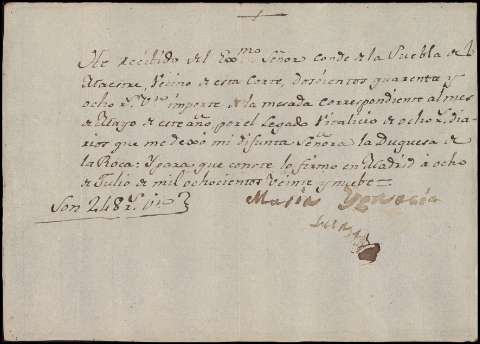 He recibido del Exmo. Señor Conde de la Puebla de el
Maestre, Vecino de esta Corte, Doscientos quarenta y
ocho rs. Vn. importe de la mesada correspondiente al mes
de Mayo de este año por el Legado Vitalicio de ocho rs. dia-
rios que me dexó mi difunta Señora la Duquesa de
la Roca: Y para que conste lo firmo en Madrid á ocho
de Julio de mil ochocientos veinte y nuebe=
Son 248 rs. vn.
Maria Ygnacia